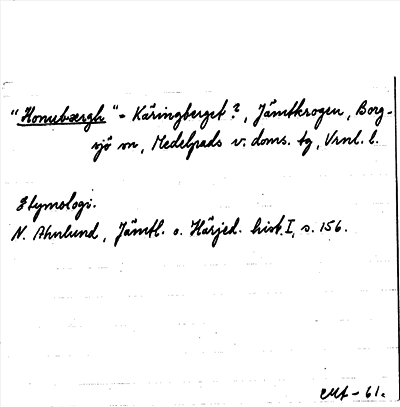 "Konubærgh" = Käringberget?, Jämtkrogen, Borg-
sjö sn, Medelpads v. doms. tg, Vrnl. l.
Etymologi.
N. Ahnlund, Jämtl. o. Härjed. hist. I, s. 156.
-61.